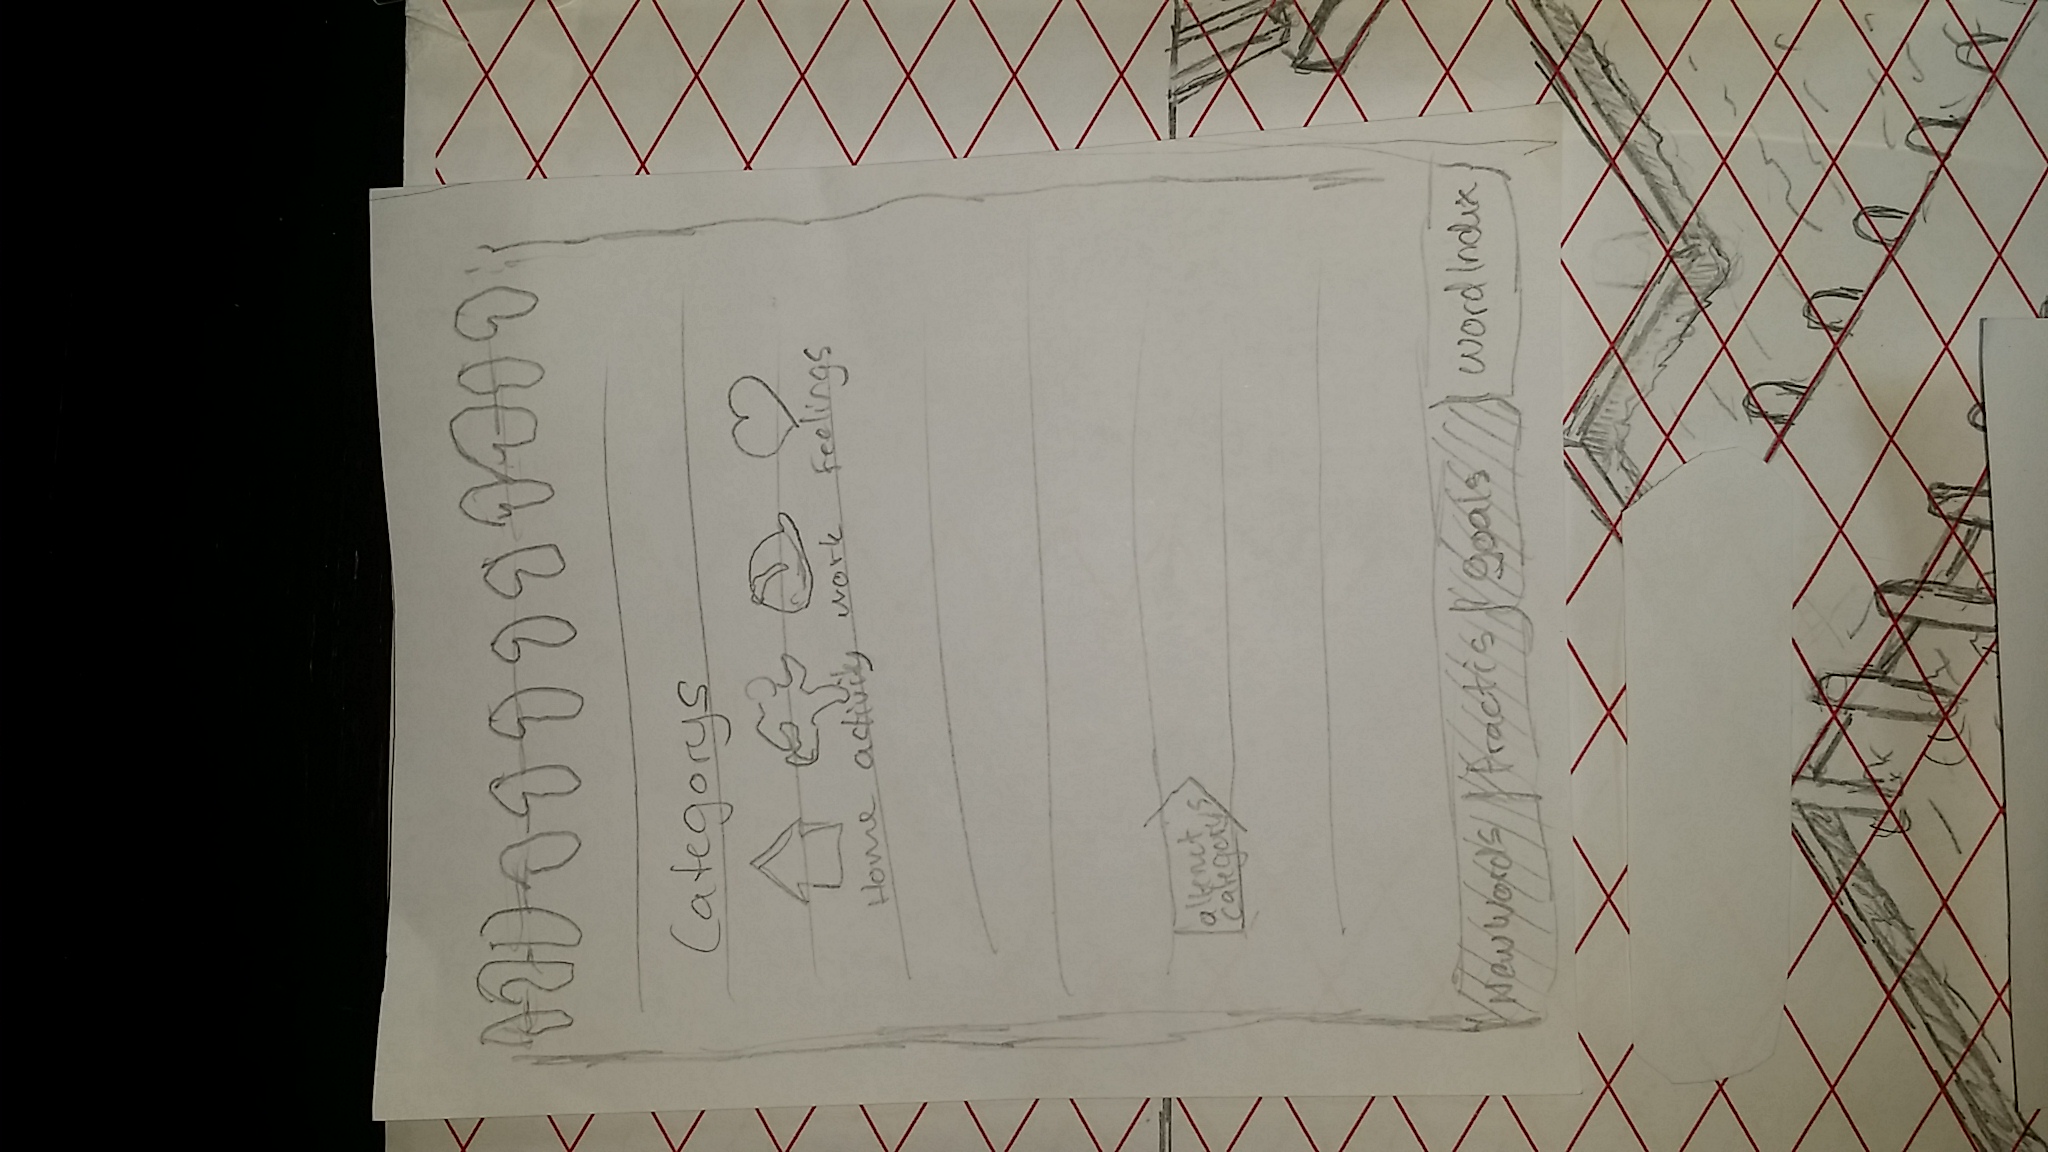 Categorys
Home activity work Feelings
alternet
categorys
New words Practis goals word Index